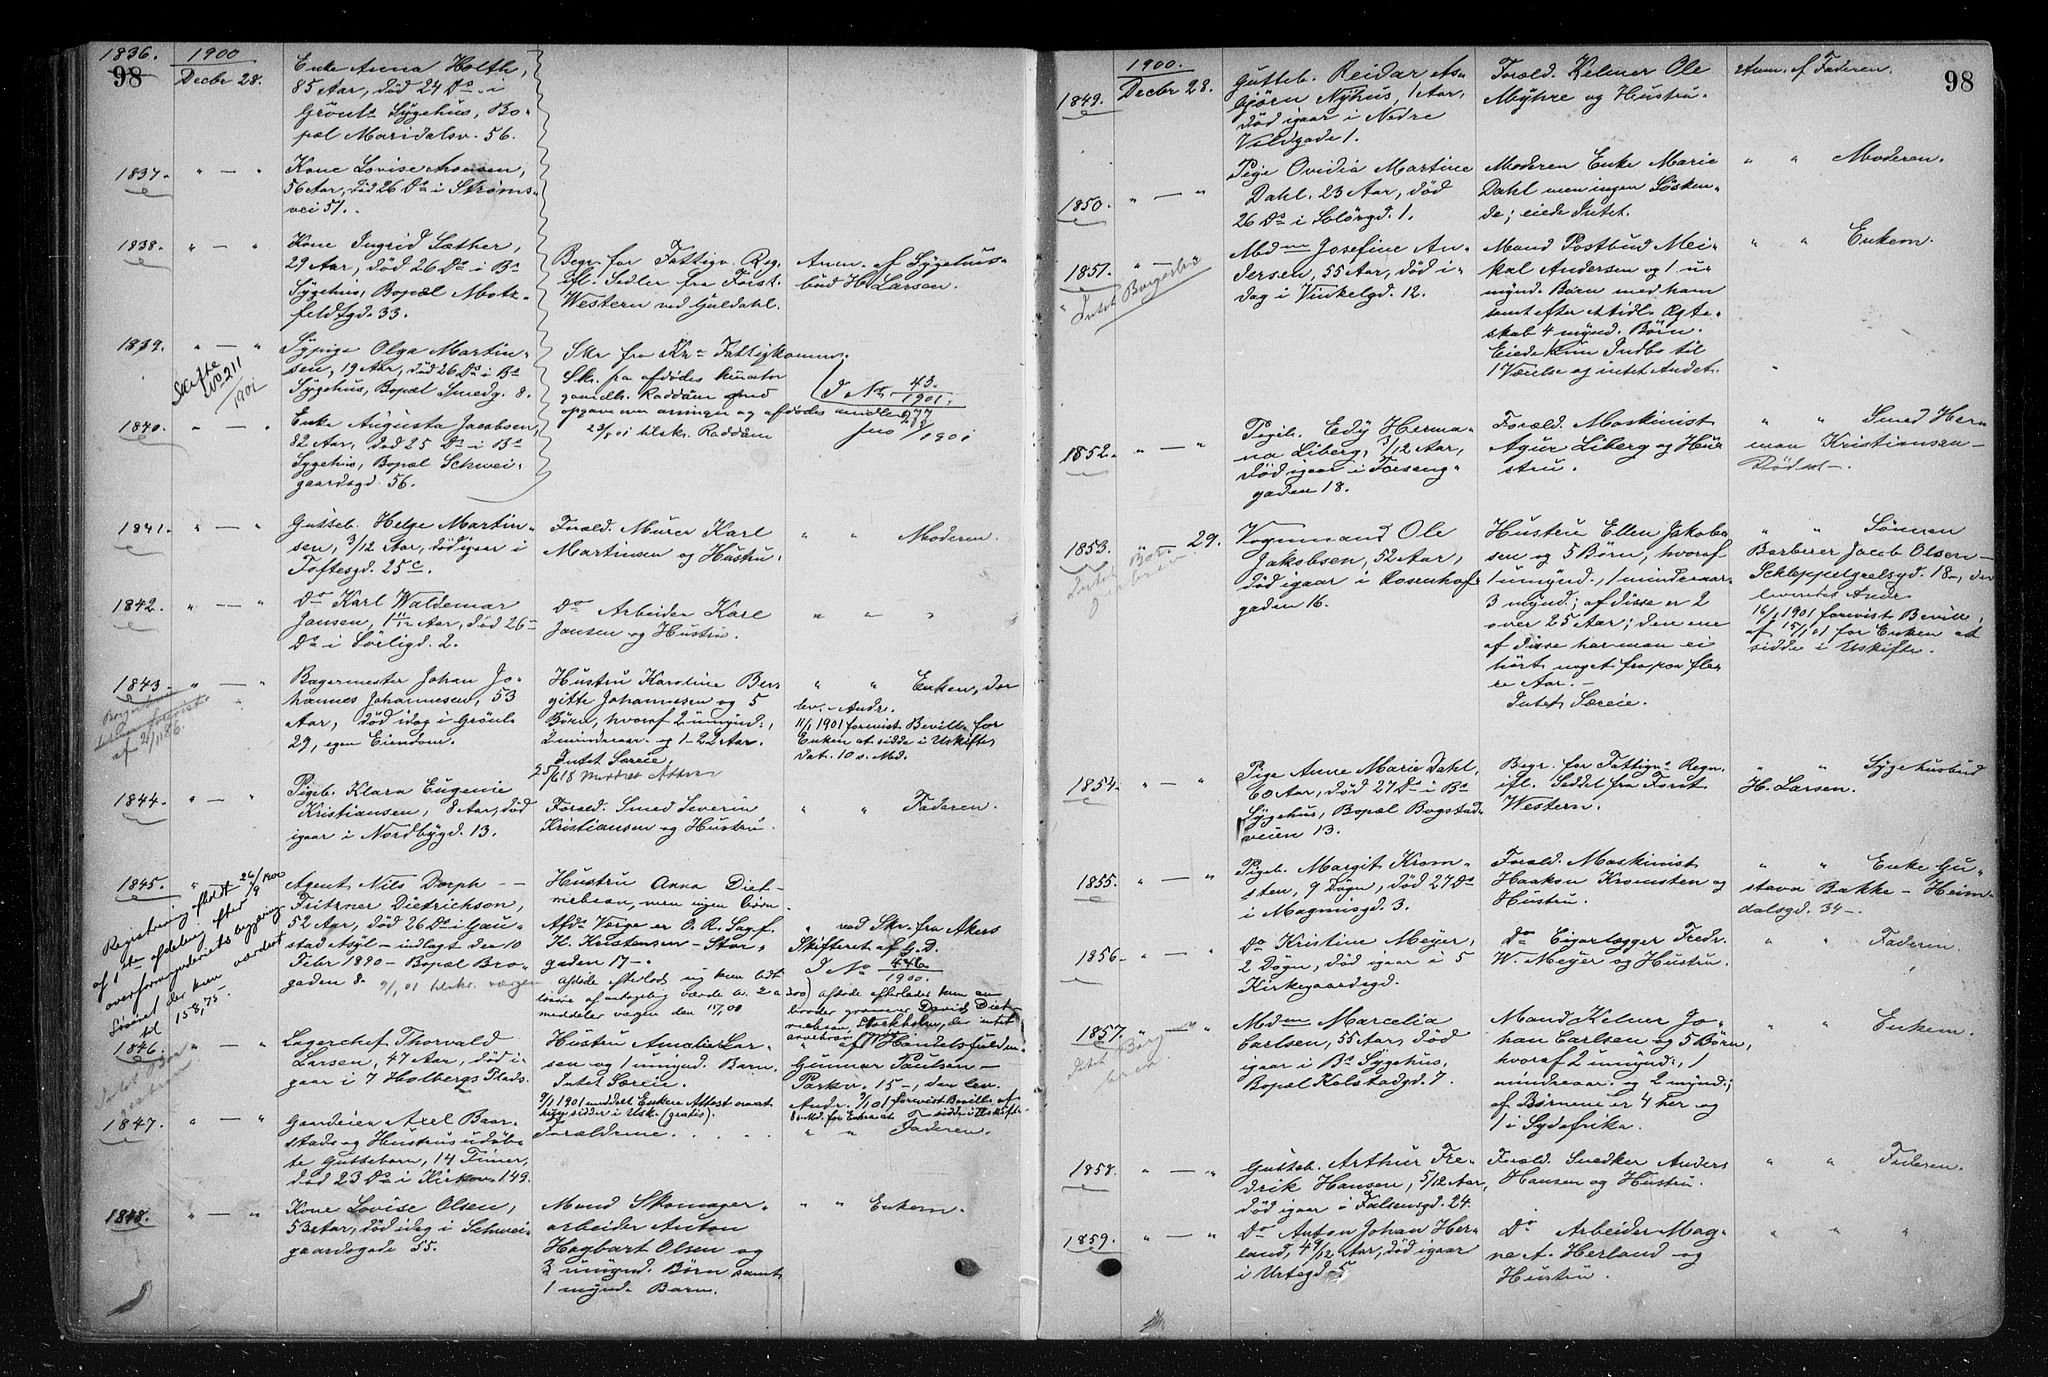 1836.
98
1900
Decbr 28.
Enke Anna Holth,
85 Aar, død 24 Ds. i
Grønl. Sygehus, Bo-
pæl Maridalsv. 56.
1837.
" — "
Kone Lovise
56 Aar, død 26 Ds i Strøms-
vei 51.
1838.
" — "
Kone Ingrid Sæther,
29 Aar, død 26 Ds i Bs
Sygehus, Bopæl Motz-
feldtsgd. 33.
Begr. for Fattigv. Reg.
ifl. Sedler fra Forst.
Western ved Guldahl.
Anm. af Sygehus-
bud H. Larsen.
1839.
" — "
Skifte
No 211
1901
Sypige Olga Martin-
sen, 19 Aar, død 26 Ds i Bs
Sygehus, Bopæl Smedg. 8.
Skr fra Kra Fattigkomm.
Skr. fra afdødes kurator
Raddum
opgave om arvinger og afdødes midler
23/8 01 tilskr. Raddum
J No 43
1901.
1840.
" — "
Enke Augusta Jacobsen,
82 Aar, død 25 Ds i Bs
Sygehus, Bopæl Schwei-
gaardsgd. 56.
1841.
" — "
Gutteb. Helge Martin-
sen, 3/12 Aar, død igaar i
Toftesgd. 25 c.
Foræld. Murer Karl
Martinsen og Hustru.
" " Moderen.
1842.
" — "
Do Karl Waldemar
Jansen, 1 11/12 Aar, død 26
Ds i Sørligd. 2.
Do Arbeider Karl
Jansen og Hustru.
" " "
1843.
" — "
Bagermester Johan Jo-
hannes Johannesen, 53
Aar, død idag i Grønl.
29, egen Eiendom.
Hustru Karoline Ber-
gitte Johannesen og 5
Børn, hvoraf 2 umynd.,
2 mindreaar. og 1 22 Aar.
Intet Særeie.
" " Enken, der
lev. Andr.
11/1 1901 forevist Bevill. for
Enken at sidde i Uskifte,
dat. 10 s. Md.
1844.
" — "
Pigeb. Klara Eugenie
Kristiansen, 8 Aar, død
igaar i Nordbygd. 13.
Foræld. Smed Severin
Kristiansen og Hustru.
" " Faderen.
1845.
"
Registrering afholdt 26/9 1900
af 1ste afdeling efter
overformynderiets begjæring
til 158,75.
Agent Nils Dorph
Fritzner Dietrichson,
52 Aar, død 26 Ds i Gau-
stad Asyl – indlagt den 10
Febr 1890 – Bopæl Bro-
gaden 8.
Hustru Anna Diet-
richson, men ingen børn
Afdes Værge er O. R. Sagf.
K. Kristensen – Stor-
gaden 17 –.
" ved Skr. fra Akers
Skifteret af G. D.
J No 446
1900.
1846.
" — "
Lagerchef Thorvald
Larsen, 47 Aar, død i-
gaar i 7 Holbergs Plads.
Hustru Amalie Lar-
sen og 1 umynd. Barn.
Intet Særeie.
" af Handelsfuldm.
Gunnar Paulsen –
Parkv. 15 –, den lev.
1847.
" — "
Gaardeier Axel Baar-
stads og Hustrus udøb-
te Guttebarn, 14 Timer,
død 23 Ds i Kirkev. 149.
Forældrene . . . .
" " Faderen.
1848.
" — "
Kone Lovise Olsen,
53 Aar, død idag i Schwei-
gaardsgade 55.
Mand Skomager-
arbeider Anton
Hagbart Olsen og
3 umynd. Børn samt
1 mynd. Barn.
" " Enkem.
98
1900.
1849.
Decbr 28.
Gutteb. Reidar As-
bjørn Nyhus, 1 Aar,
død igaar i Nedre
Voldgade 1.
Foræld. Kelner Ole
Myhre og Hustru.
Anm. af Faderen.
1850.
" — "
Pige Ovidia Martine
Dahl, 23 Aar, død
26 Ds i Solørgd. 1.
Moderen Enke Marie
Dahl men ingen Søsken-
de; eiede Intet.
" " Moderen.
1851.
" —
Intet Borgerbr
Mdme Josefine An-
dersen, 55 Aar, død i-
dag i Vinkelgd. 12.
Mand Postbud Mei-
kal Andersen og 1 u-
mynd. Børn med ham
samt efter tidl. Ægte-
skab 4 mynd. Børn.
Eiede kun Indbo til
1 Værelse og intet Andet.
" " Enkem.
1852.
" — "
Pigeb. Edy Herma-
na Liberg, 3/12 Aar,
død igaar i Toreng-
gaden 18.
Foræld. Maskinist
Agur Liberg og Hu-
stru.
" " Smed Her-
man Kristiansen –
1853.
" — 29.
Vognmand Ole
Jakobsen, 52 Aar,
død igaar i Rosenhof-
gaden 16.
Hustru Ellen Jakob-
sen og 5 Børn, hvoraf
1 umynd., 1 mindreaar.
3 mynd.; af disse er 2
over 25 Aar; den ene
af disse har man ei
hørt noget fra paa fle-
re Aar. –
Intet Særeie.
" " Sønnen
Barberer Jacob Olsen –
Schleppelgrelsgd. 18 –, der
leverede Andr.
16/1 1901 forevist Bevill.
af 15/1 01 for Enken at
sidde i Uskifte.
1854.
" — "
Pige Anne Marie Dahl,
60 Aar, død 27 Ds i Bs
Sygehus, Bopæl Bogstad-
veien 13.
Begr. for Fattigvs Regn.
ifl. Seddel fra Forst.
Western.
" " Sygehusbud
H. Larsen.
1855.
" — "
Pigeb. Margit Krom-
sten, 9 Døgn, død 27 Ds
i Magnusgd. 3.
Foræld. Maskinist
Haakon Kromsten og
Hustru.
" " Enke Gu-
stava Bakke – Heim-
dalsgd. 34 –.
1856.
" — "
Do Kristine Meyer,
2 Døgn, død igaar i 5
Kirkegaardsgd.
Do Cigarlægger Fredr.
W. Meyer og Hustru.
" " Faderen.
1857.
" — "
Intet Borg
brev
Mdme Marcelia
Carlsen, 55 Aar, død
igaar i Bs Sygehus,
Bopæl Kolstadgd. 7.
Mand Kelner Jo-
han Carlsen og 5 Børn,
hvoraf 2 umynd., 1
mindreaar. og 2 mynd.;
af Børnene er 4 her og
1 i Sydafrika.
" " Enkem.
1858.
" — "
Gutteb. Arthur Fre-
drik Hansen, 5/12 Aar,
død igaar i Falsensgd. 24.
Foræld. Snedker Anders
Hansen og Hustru.
" " Faderen.
1859.
" — "
Do Anton Johan Her-
land, 4 9/12 Aar, død igaar
i Urtegd. 5.
Do Arbeider Mag-
ne A. Herland og
Hustru.
" " "